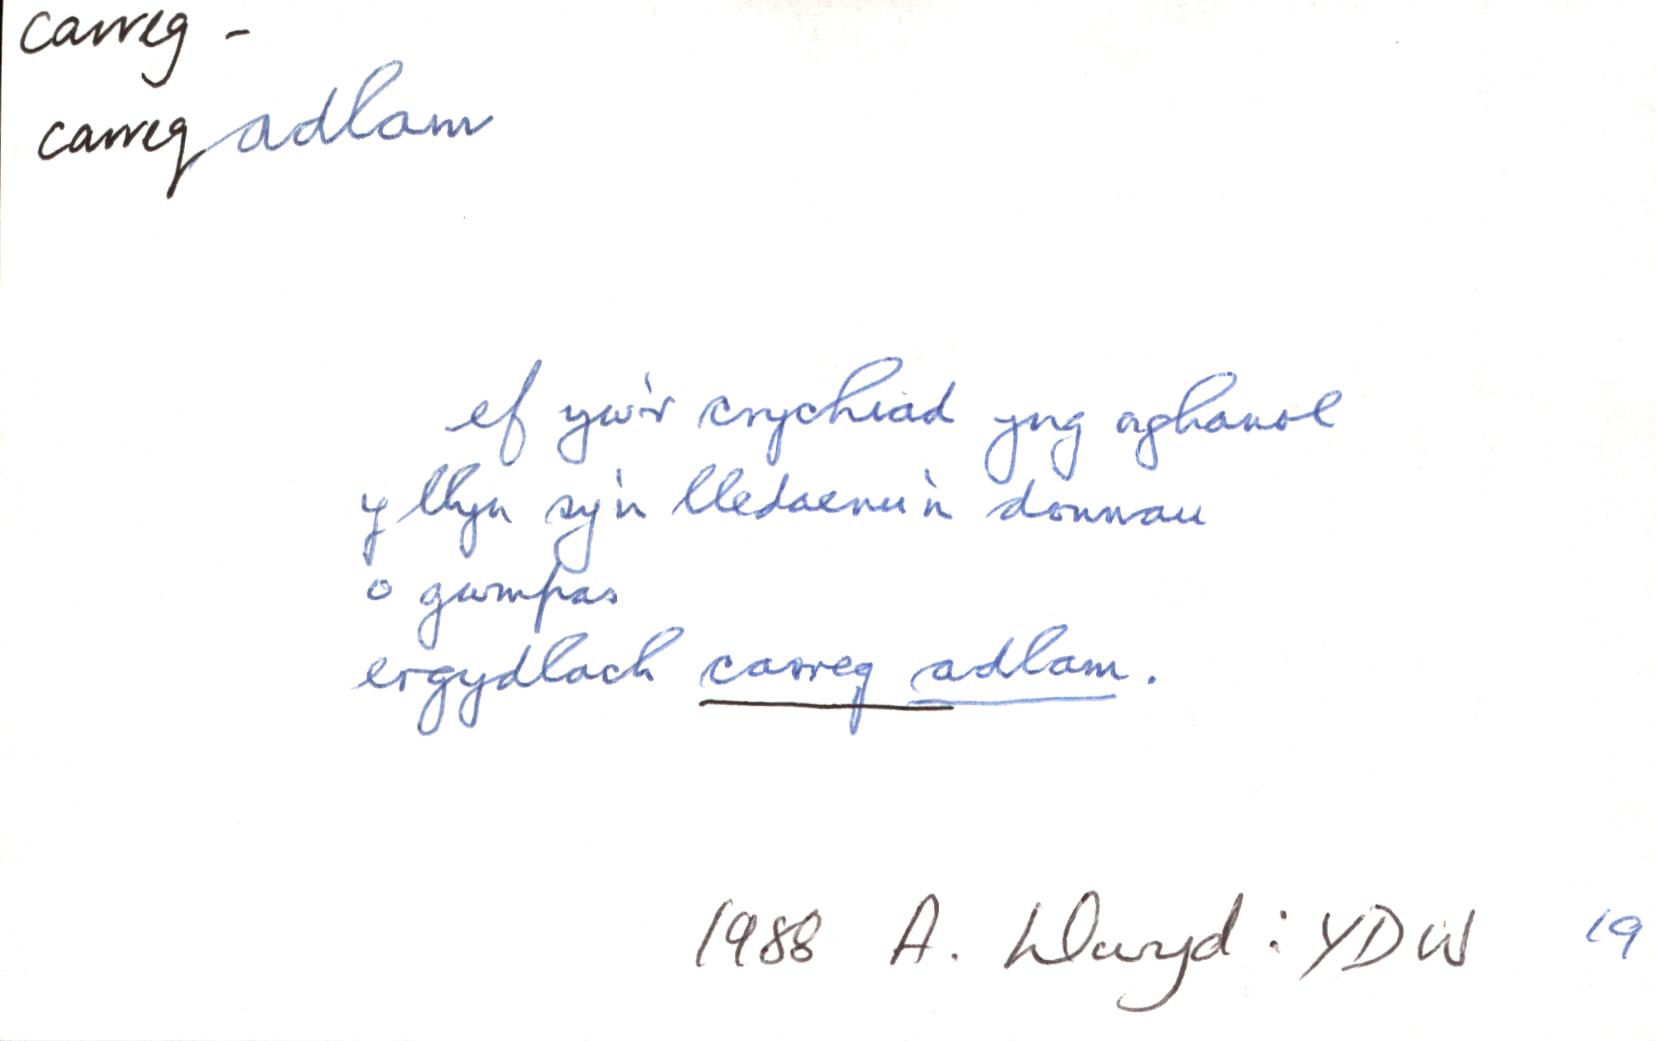 carreg -
carreg adlam
ef yw'r crychiad yng nghanol
y llyn sy'n lledaenu'n donnau
o gwmpas
ergydlach carreg adlam.
1988 A. Llwyd : YDW 19